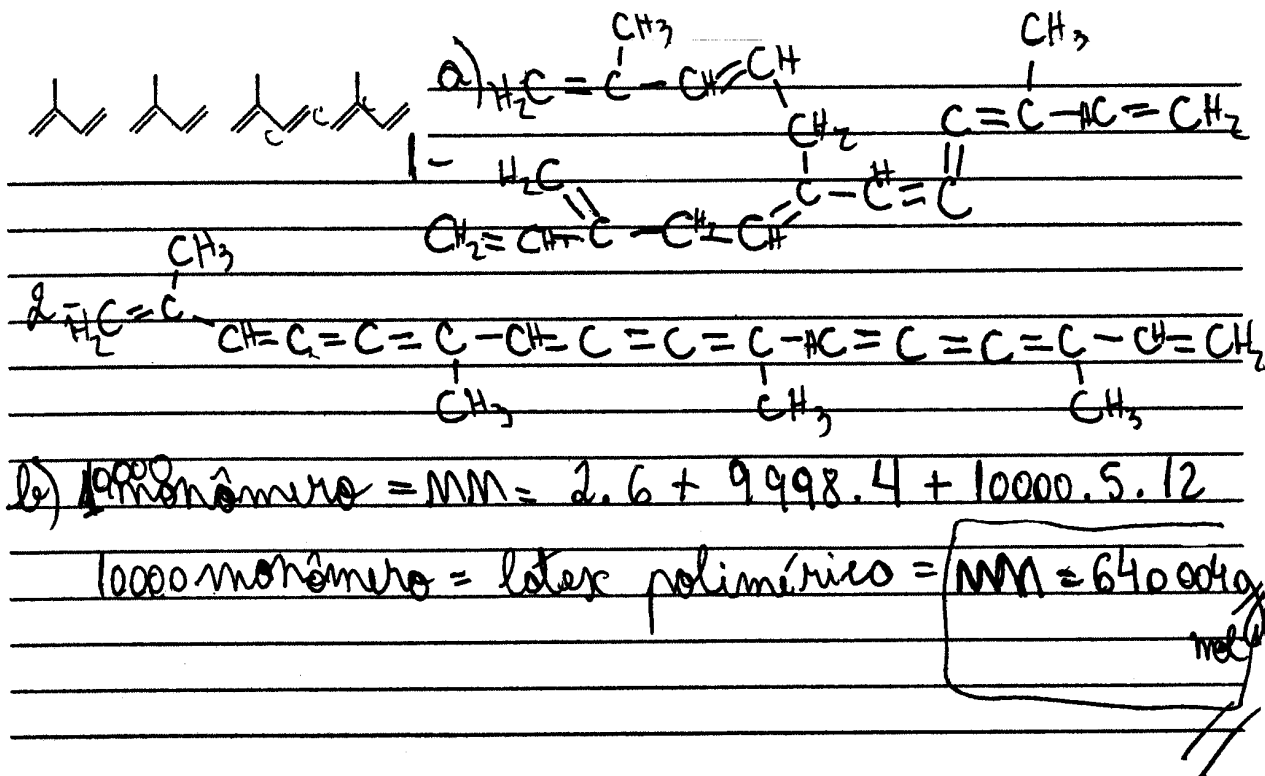 C C C
a) H2C = C - CH = CH
CH3
CH2
CH3
C = C - HC = CH2
1-
H2C
C - CH = C
CH2 = CH - C - CH2 - CH
CH3
2- H2C = C
CH = C = C = C - CH = C = C = C - HC = C = C = C - CH = CH2
CH3 CH3 CH3
b) 10000 monômero = MM = 2.6 + 9998.4 + 10000.5.12
10000 monômero = latex polimérico = MM = 640004g/mol